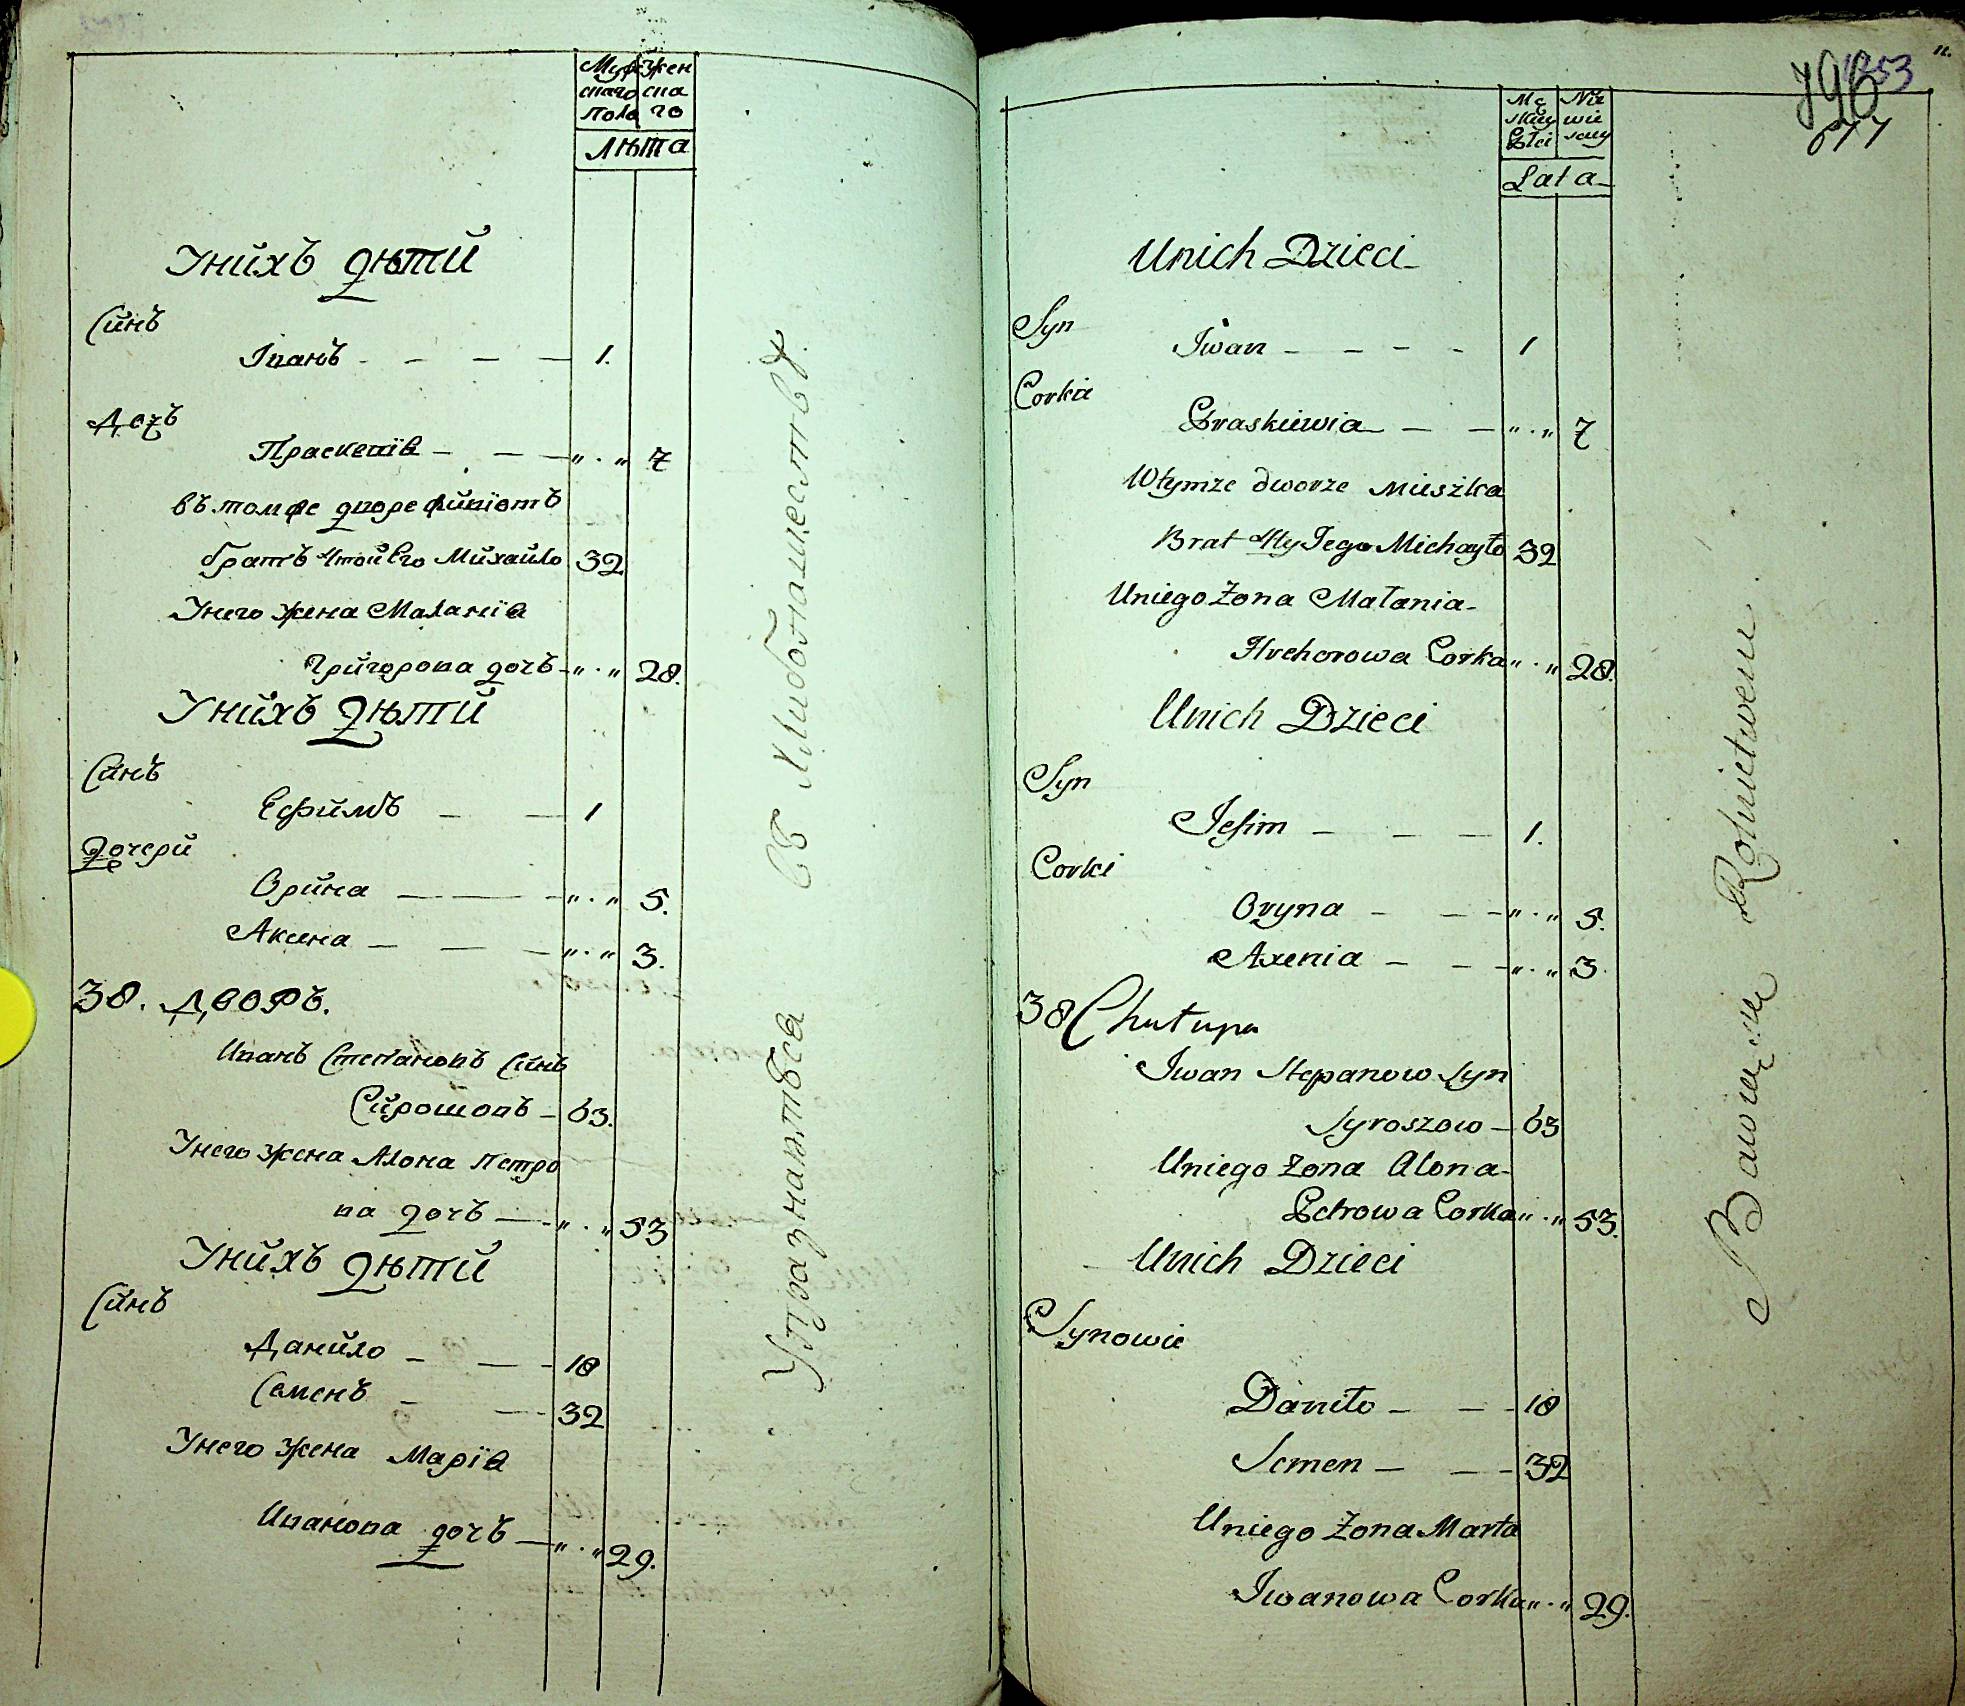 Муж Жен
скаго ска
пола го
Лѣта
Унйхъ дѣтй
Сйнъ
Іванъ — — — 1.
Дочъ
Праскевїя — — „ . „ 7
въ томже дворе живїотъ
братъ Михайло 32
Унего жена Маланїя
Григорова дочъ — „ . „ 28.
Унйхъ Дѣтй
Сйнъ
Ефимъ — — 1
Дочерй
Орйна — — „ . „ 5.
Аксина — — „ . „ 3.
38. Дворъ.
Иванъ Степановъ Сйнъ
Сйрошовъ — 63.
Унего жена Алона Петро
ва дочъ — „ . „ 53
Унйхъ Дѣтй
Сйнъ
Данйло — — 18
Семенъ — — 32
Унего жена Марїя
Иванова дочъ — „ . „ 29.
Упразнятьса въ Хлибопашествѣ.
796
1253
677
Mę Nie
skiey wie
Płci sciey
Lata
Unich Dzieci
Syn
Iwan — — — — 1
Corka
Praskiewia — — „ . „ 7
Wtymze dworze Mieszka
Brat Jego Michayło 32
Uniego Żona Małania
Hrehorowa Corka „ . „ 28.
Unich Dzieci
Syn
Jefim — — — 1.
Corki
Oryna — — — „ . „ 5.
Axenia — — — „ . „ 3.
38 Chałupa
Iwan Stepanow Syn
Syroszow — 63
Uniego Żona Alona
Petrowa Corka „ . „ 53.
Unich Dzieci
Synowie
Daniło — — — 18
Semen — — — 32
Uniego Żona Marta
Iwanowa Corka „ . „ 29.
Bawią się Rolnictwem.